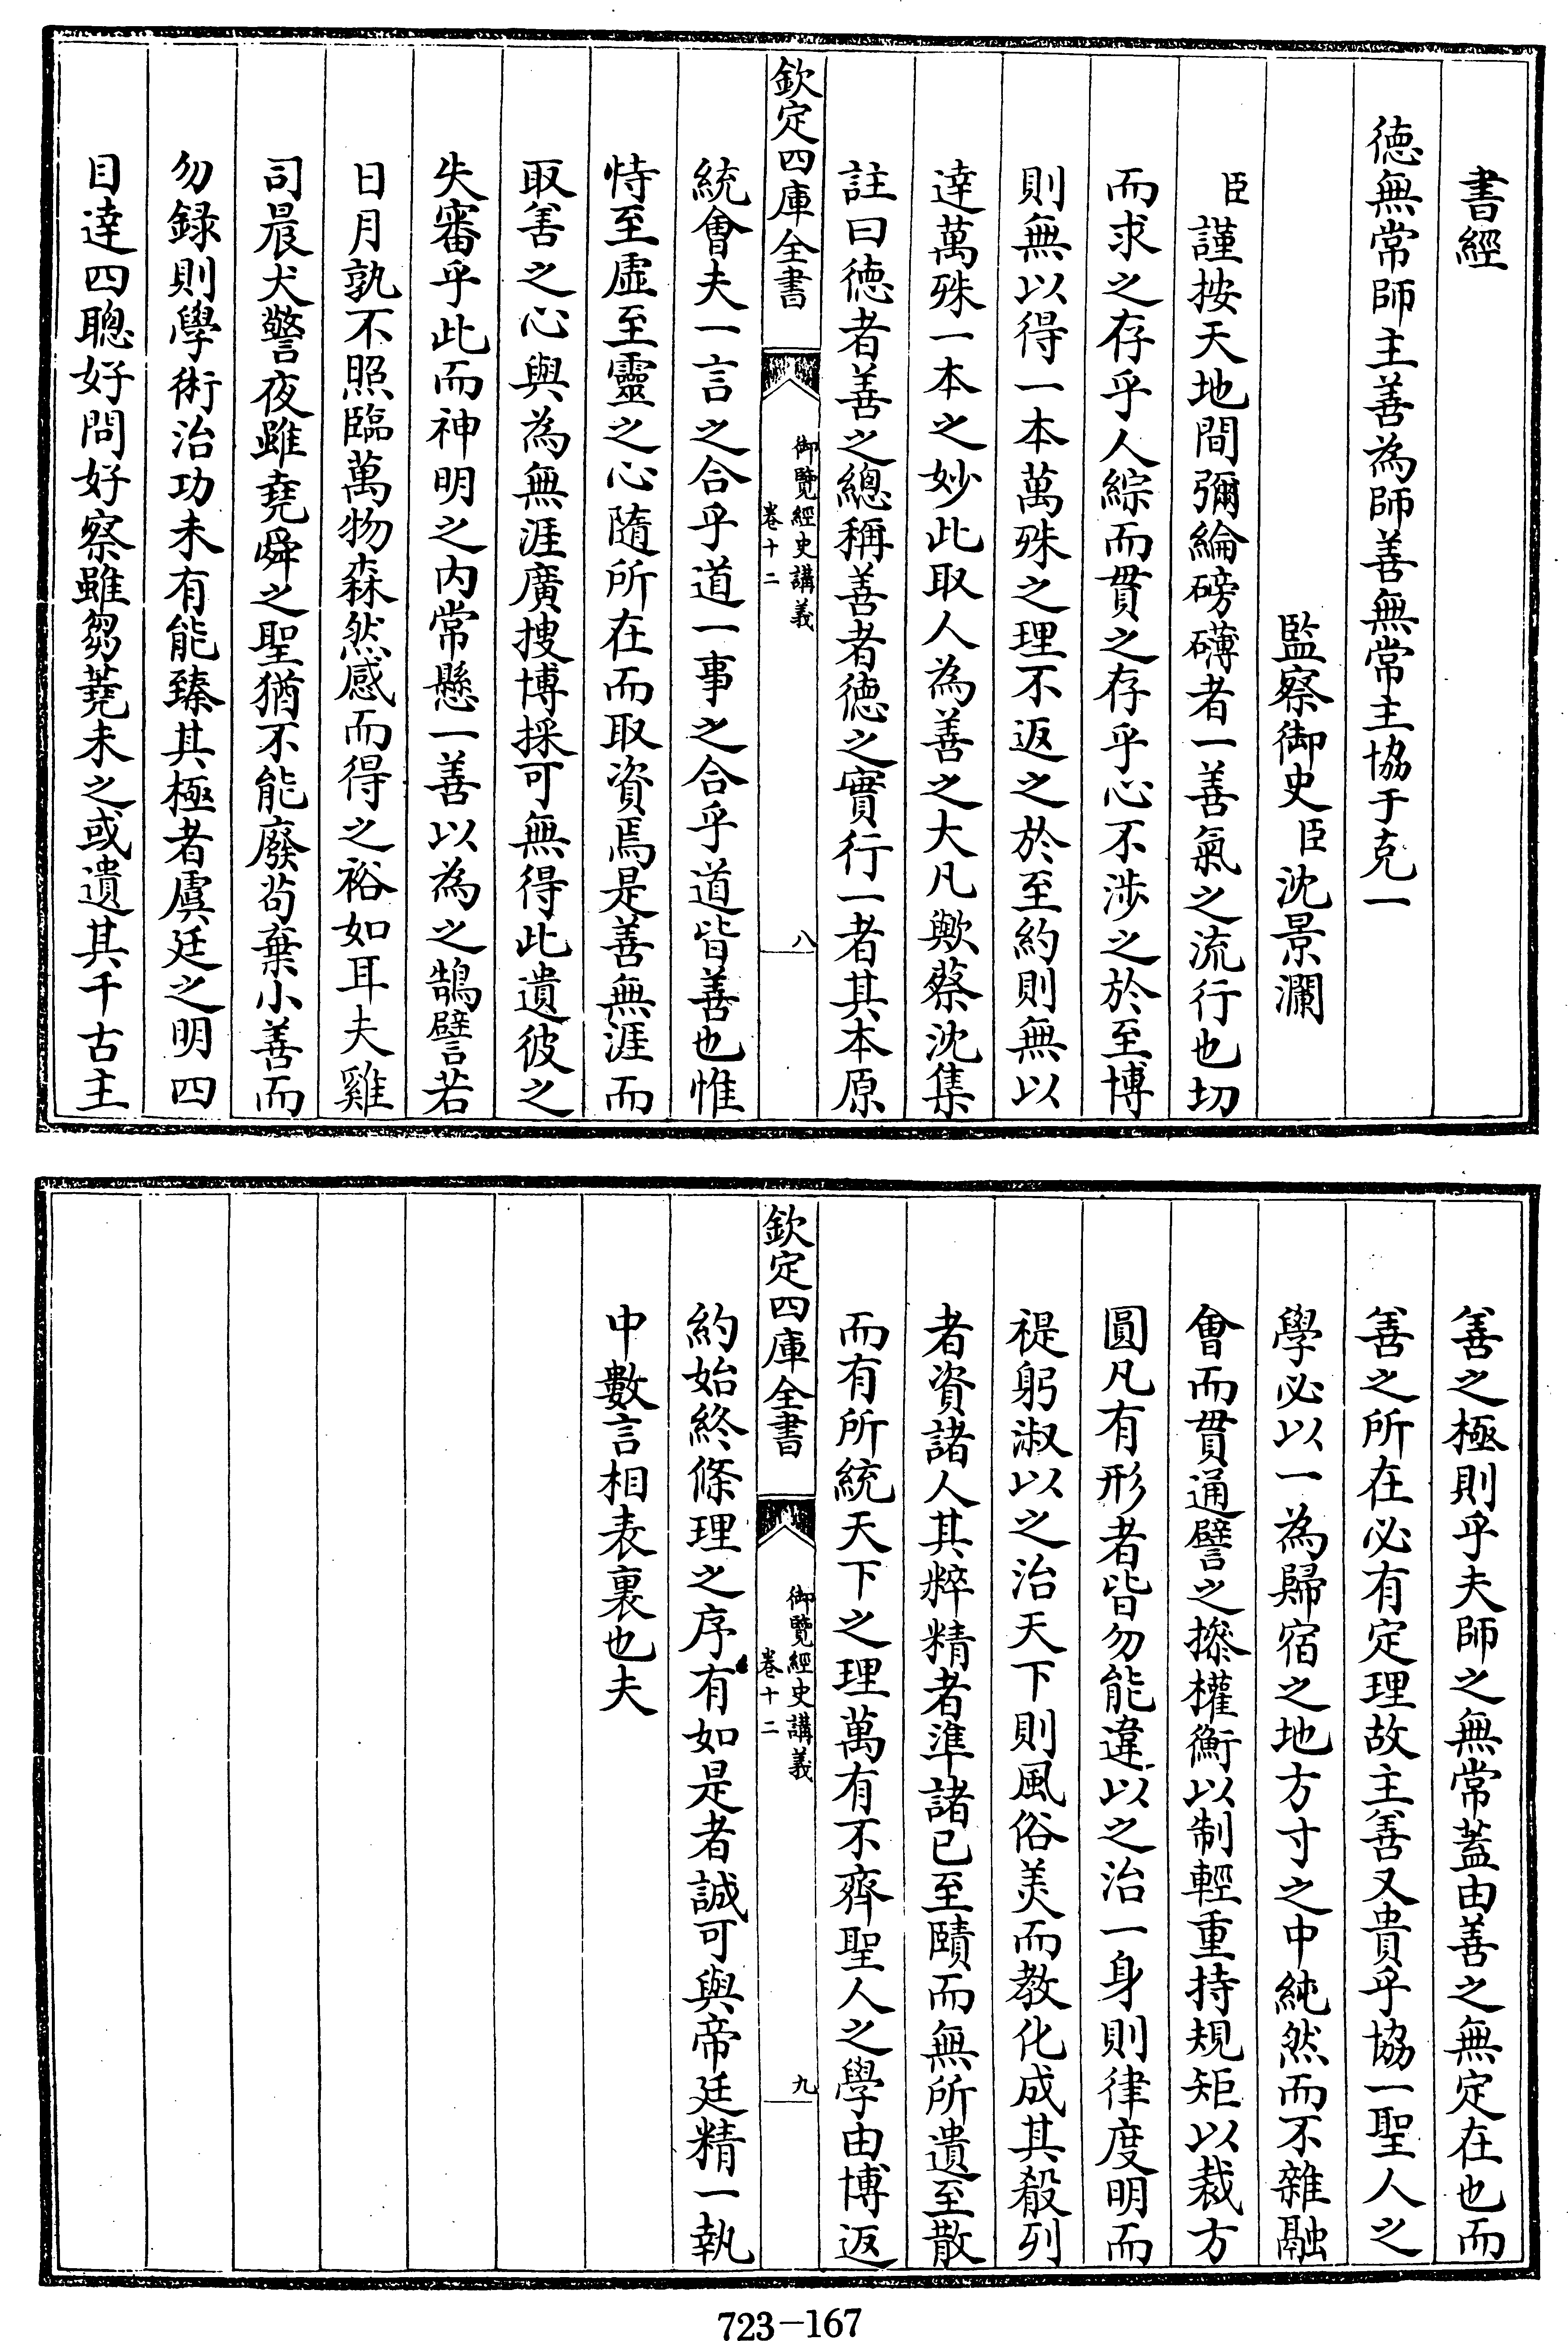 書經
徳無常師主善為師善無常主協于克一
監察御史臣沈景瀾
臣謹按天地間彌綸磅礴者一善氣之流行也切
而求之存乎人綜而貫之存乎心不渉之於至博
則無以得一本萬殊之理不返之於至約則無以
達萬殊一本之妙此取人為善之大凡歟蔡沈集
註曰徳者善之總稱善者徳之實行一者其本原
欽定四庫全書
御覽經史講義
卷十二
八
統會夫一言之合乎道一事之合乎道皆善也惟
恃至虛至靈之心隨所在而取資焉是善無涯而
取善之心與為無涯廣捜博採可無得此遺彼之
失審乎此而神明之内常懸一善以為之鵠譬若
日月孰不照臨萬物森然感而得之裕如耳夫雞
司晨犬警夜雖堯舜之聖猶不能廢茍棄小善而
勿録則學術治功未有能臻其極者虞廷之明四
目達四聰好問好察雖芻蕘未之或遺其千古主
善之極則乎夫師之無常蓋由善之無定在也而
善之所在必有定理故主善又貴乎協一聖人之
學必以一為歸宿之地方寸之中純然而不雜融
會而貫通譬之摻權衡以制輕重持規矩以裁方
圓凡有形者皆勿能違以之治一身則律度明而
禔躬淑以之治天下則風俗美而教化成其殽列
者資諸人其粹精者準諸已至賾而無所遺至散
而有所統天下之理萬有不齊聖人之學由博返
欽定四庫全書
御覽經史講義
卷十二
九
約始終條理之序有如是者誠可與帝廷精一執
中數言相表裏也夫
723-167